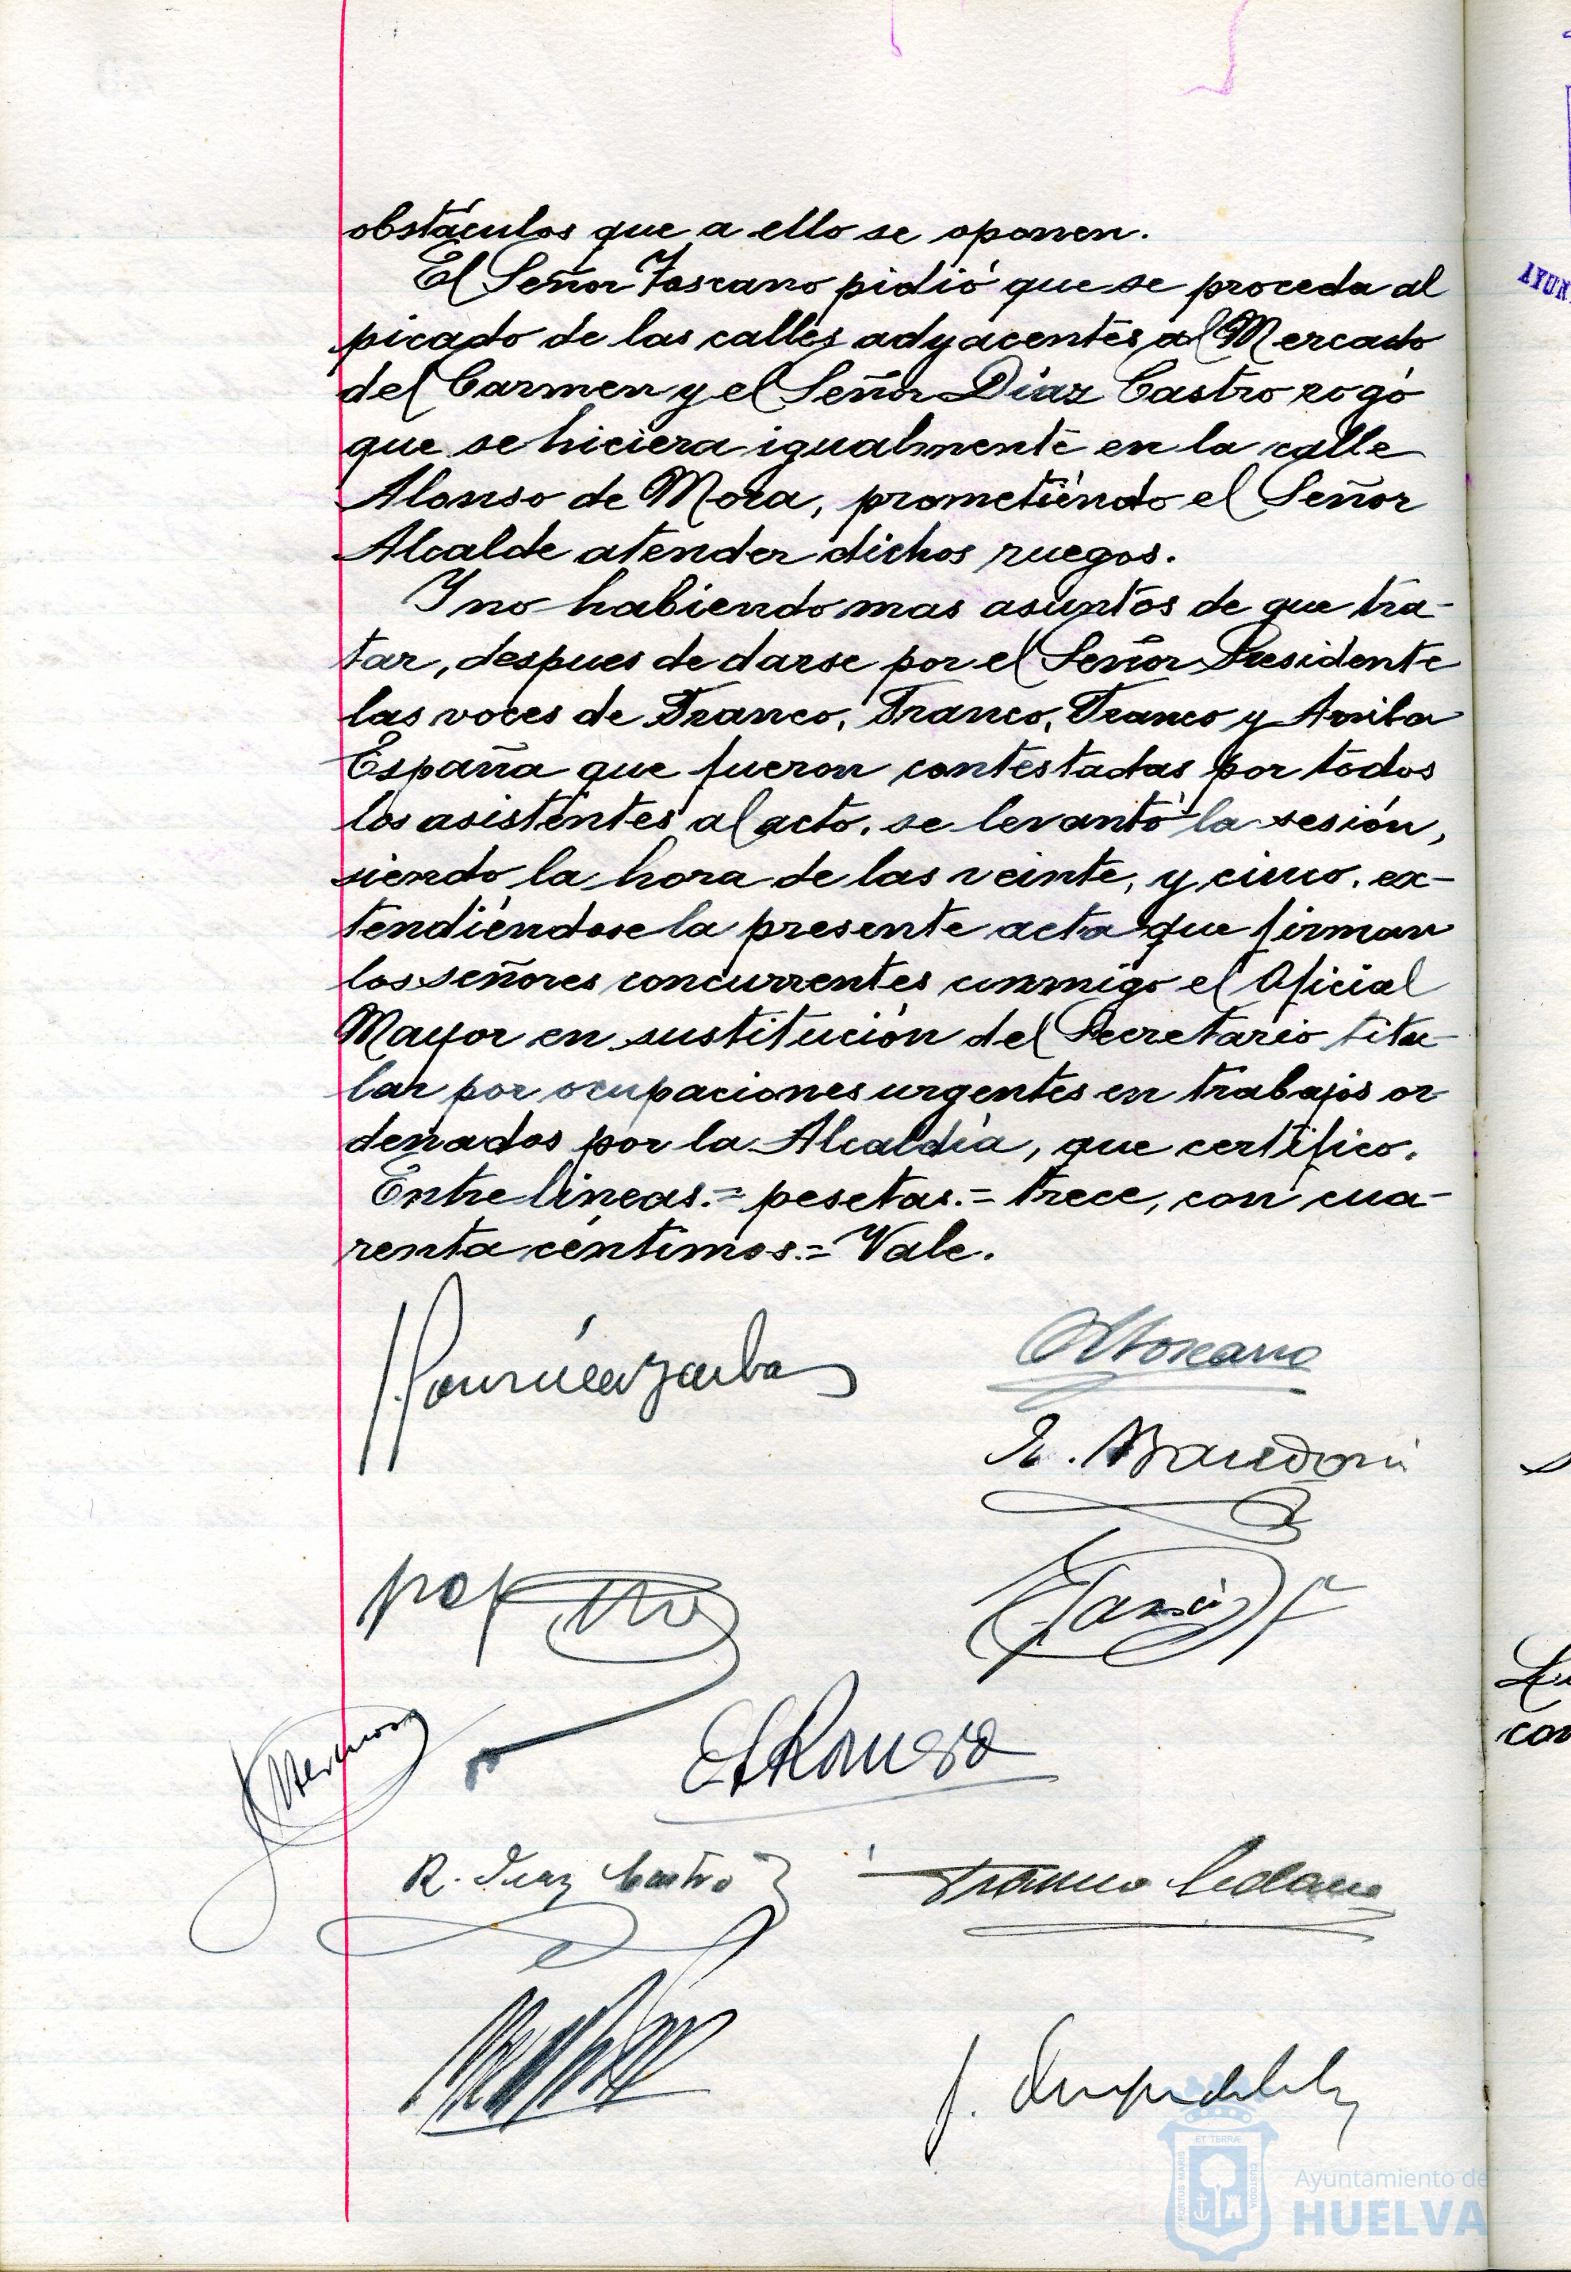 obstáculos que a ello se oponen.
El Señor Toscano pidió que se proceda al
picado de las calles adyacentes al Mercado
del Carmen y el Señor Díaz Castro rogó
que se hiciera igualmente en la calle
Alonso de Mora, prometiendo el Señor
Alcalde atender dichos ruegos.
Y no habiendo mas asuntos de que tra-
tar, despues de darse por el Señor Presidente
las voces de Franco, Franco, Franco y Arriba
España que fueron contestadas por todos
los asistentes al acto, se levantó la sesión,
siendo la hora de las veinte, y cinco, ex-
tendiéndose la presente acta que firman
los señores concurrentes conmigo el Oficial
Mayor en sustitución del Secretario titu-
lar por ocupaciones urgentes en trabajos or-
denados por la Alcaldía, que certifico.
Entre líneas.= pesetas.= trece, con cua-
renta céntimos.= Vale.
R. Díaz Castro
ET TERRÆ
PORTUS MARIS
CUSTODIA
Ayuntamiento de
HUELVA
AYUN